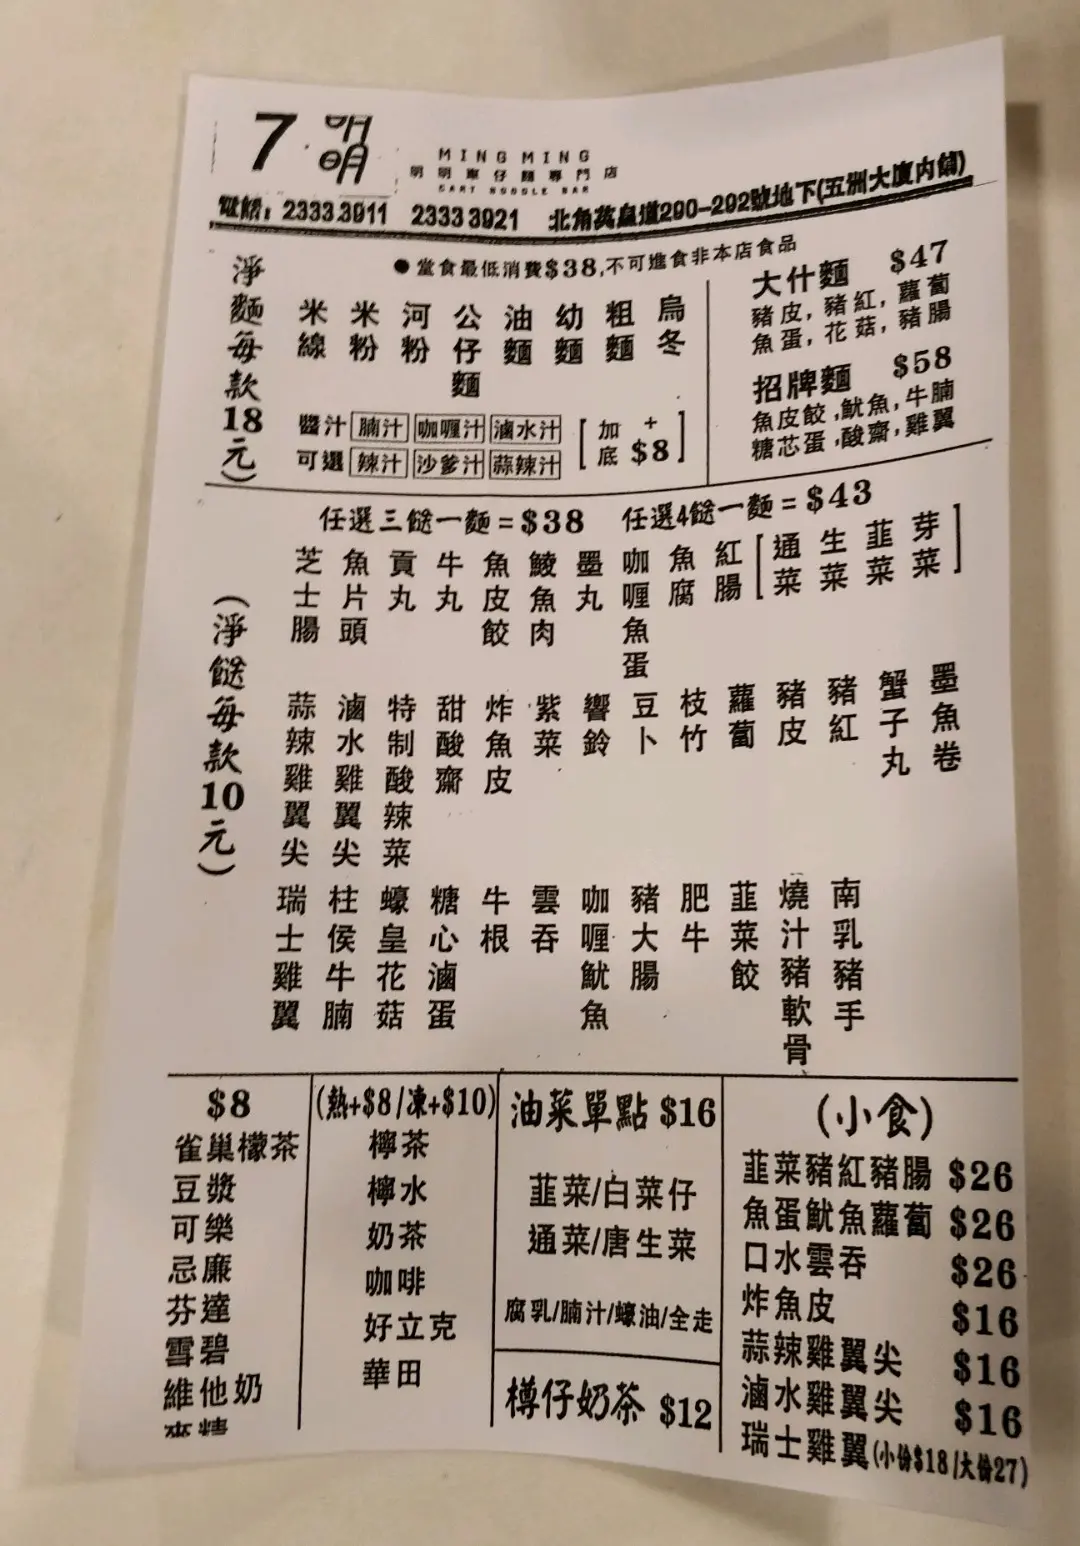 7 明明
MING MING
明明車仔麵專門店
CART NOODLE BAR
電話：2333 3911 2333 3921 北角英皇道290-292號地下(五洲大廈内舖)
●堂食最低消費$38,不可進食非本店食品
淨麵每款18元）
米線
米粉
河粉
公仔麵
油麵
幼麵
粗麵
烏冬
醬汁可選
腩汁 咖喱汁 滷水汁
辣汁 沙爹汁 蒜辣汁
[加底 +$8]
大什麵 $47
豬皮,豬紅,蘿蔔
魚蛋,花菇,豬腸
招牌麵 $58
魚皮餃,魷魚,牛腩
糖芯蛋,酸齋,雞翼
任選三餸一麵=$38 任選4餸一麵=$43
（淨餸每款10元）
芝士腸
魚片頭
貢丸
牛丸
魚皮餃
鯪魚肉
墨丸
咖喱魚蛋
魚腐
紅腸
[通菜
生菜
韮菜
芽菜]
蒜辣雞翼尖
滷水雞翼尖
特制酸辣菜
甜酸齋
炸魚皮
紫菜
響鈴
豆卜
枝竹
蘿蔔
豬皮
豬紅
蟹子丸
墨魚卷
瑞士雞翼
柱侯牛腩
蠔皇花菇
糖心滷蛋
牛根
雲吞
咖喱魷魚
豬大腸
肥牛
韮菜餃
燒汁豬軟骨
南乳豬手
$8
雀巢檬茶
豆漿
可樂
忌廉
芬達
雪碧
維他奶
麥精
(熱+$8/凍+$10)
檸茶
檸水
奶茶
咖啡
好立克
華田
油菜單點 $16
韮菜/白菜仔
通菜/唐生菜
腐乳/腩汁/蠔油/全走
樽仔奶茶 $12
(小食)
韮菜豬紅豬腸 $26
魚蛋魷魚蘿蔔 $26
口水雲吞 $26
炸魚皮 $16
蒜辣雞翼尖 $16
滷水雞翼尖 $16
瑞士雞翼(小份$18/大份27)